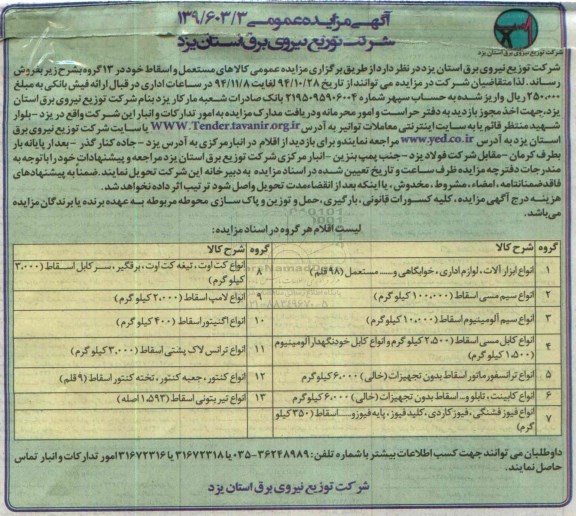 آگهی مزایده عمومی ۱۳۹/۶۰۳/۳
شرکت توزیع نیروی برق استان یزد
شرکت توزیع نیروی برق استان یزد
شرکت توزیع نیروی برق استان یزد در نظر دارد از طریق برگزاری مزایده عمومی کالاهای مستعمل و اسقاط خود در ۱۳ گروه بشرح زیر بفروش
رساند. لذا متقاضیان شرکت در مزایده می توانند از تاریخ ۹۴/۱۰/۲۸ لغایت ۹۴/۱۱/۸ در ساعات اداری در قبال ارائه فیش بانکی به مبلغ
۲۵۰،۰۰۰ ریال واریز شده به حساب سپهر شماره ۲۱۹۵۰۹۵۹۰۶۰۰۲ بانک صادرات شعبه مارکار یزد بنام شرکت توزیع نیروی برق استان
یزد، جهت اخذ مجوز بازدید به دفتر حراست و امور محرمانه و دریافت مدارک مزایده به امور تدارکات و انبار این شرکت واقع در یزد - بلوار
شهید منتظر قائم یا به سایت اینترنتی معاملات توانیر به آدرس WWW.Tender.tavanir.org.ir یا سایت شرکت توزیع نیروی برق
استان یزد به آدرس www.yed.co.ir مراجعه نمایند و برای بازدید از اقلام در انبار مرکزی به آدرس یزد - جاده کنار گذر - بعد از پایانه بار
بطرف کرمان - مقابل شرکت فولاد یزد - جنب پمپ بنزین - انبار مرکزی شرکت توزیع برق استان یزد مراجعه و پیشنهادات خود را با توجه به
مندرجات دفترچه مزایده ظرف ساعت و تاریخ تعیین شده در اسناد مزایده به دبیرخانه این شرکت تحویل نمایند. ضمناً به پیشنهادهای
فاقد ضمانتنامه، امضاء، مشروط، مخدوش، یا اینکه بعد از انقضاء مدت تحویل واصل شود ترتیب اثر داده نخواهد شد.
هزینه درج آگهی مزایده، کلیه کسورات قانونی، بارگیری، حمل و توزین و پاک سازی محوطه مربوطه به عهده برنده یا برندگان مزایده
می باشد.
لیست اقلام هر گروه در اسناد مزایده:
گروه شرح کالا گروه شرح کالا
۱ انواع ابزار آلات، لوازم اداری، خوابگاهی و..... مستعمل (۹۸ قلم)
۸ انواع کت اوت، تیغه کت اوت، برقگیر، سر کابل اسقاط (۳،۰۰۰ کیلو گرم)
۲ انواع سیم مسی اسقاط (۱۰۰،۰۰۰ کیلو گرم)
۹ انواع لامپ اسقاط (۲،۰۰۰ کیلو گرم)
۳ انواع سیم آلومینیوم اسقاط (۱۰،۰۰۰ کیلو گرم)
۱۰ انواع اگنیتور اسقاط (۴۰۰ کیلو گرم)
۴ انواع کابل مسی اسقاط (۲،۵۰۰ کیلو گرم و انواع کابل خودنگهدار آلومینیوم
(۱،۵۰۰ کیلو گرم)
۱۱ انواع ترانس لاک پشتی اسقاط (۳،۰۰۰ کیلو گرم)
۵ انواع ترانسفورماتور اسقاط بدون تجهیزات (خالی) ۶،۰۰۰ کیلوگرم
۱۲ انواع کنتور، جعبه کنتور، تخته کنتور اسقاط (۹ قلم)
۶ انواع کابینت، تابلو و.. اسقاط بدون تجهیزات (خالی) ۶،۰۰۰ کیلوگرم
۱۳ انواع تیر بتونی اسقاط (۱،۵۹۳ اصله)
۷ انواع فیوز فشنگی، فیوز کاردی، کلید فیوز، پایه فیوز و..... اسقاط (۳۵۰ کیلو
گرم)
داوطلبان می توانند جهت کسب اطلاعات بیشتر با شماره تلفن: ۳۶۲۴۸۹۸۹-۰۳۵ یا ۳۱۶۷۲۳۱۸ یا ۳۱۶۷۲۳۱۶ امور تدارکات و انبار تماس
حاصل نمایند.
شرکت توزیع نیروی برق استان یزد